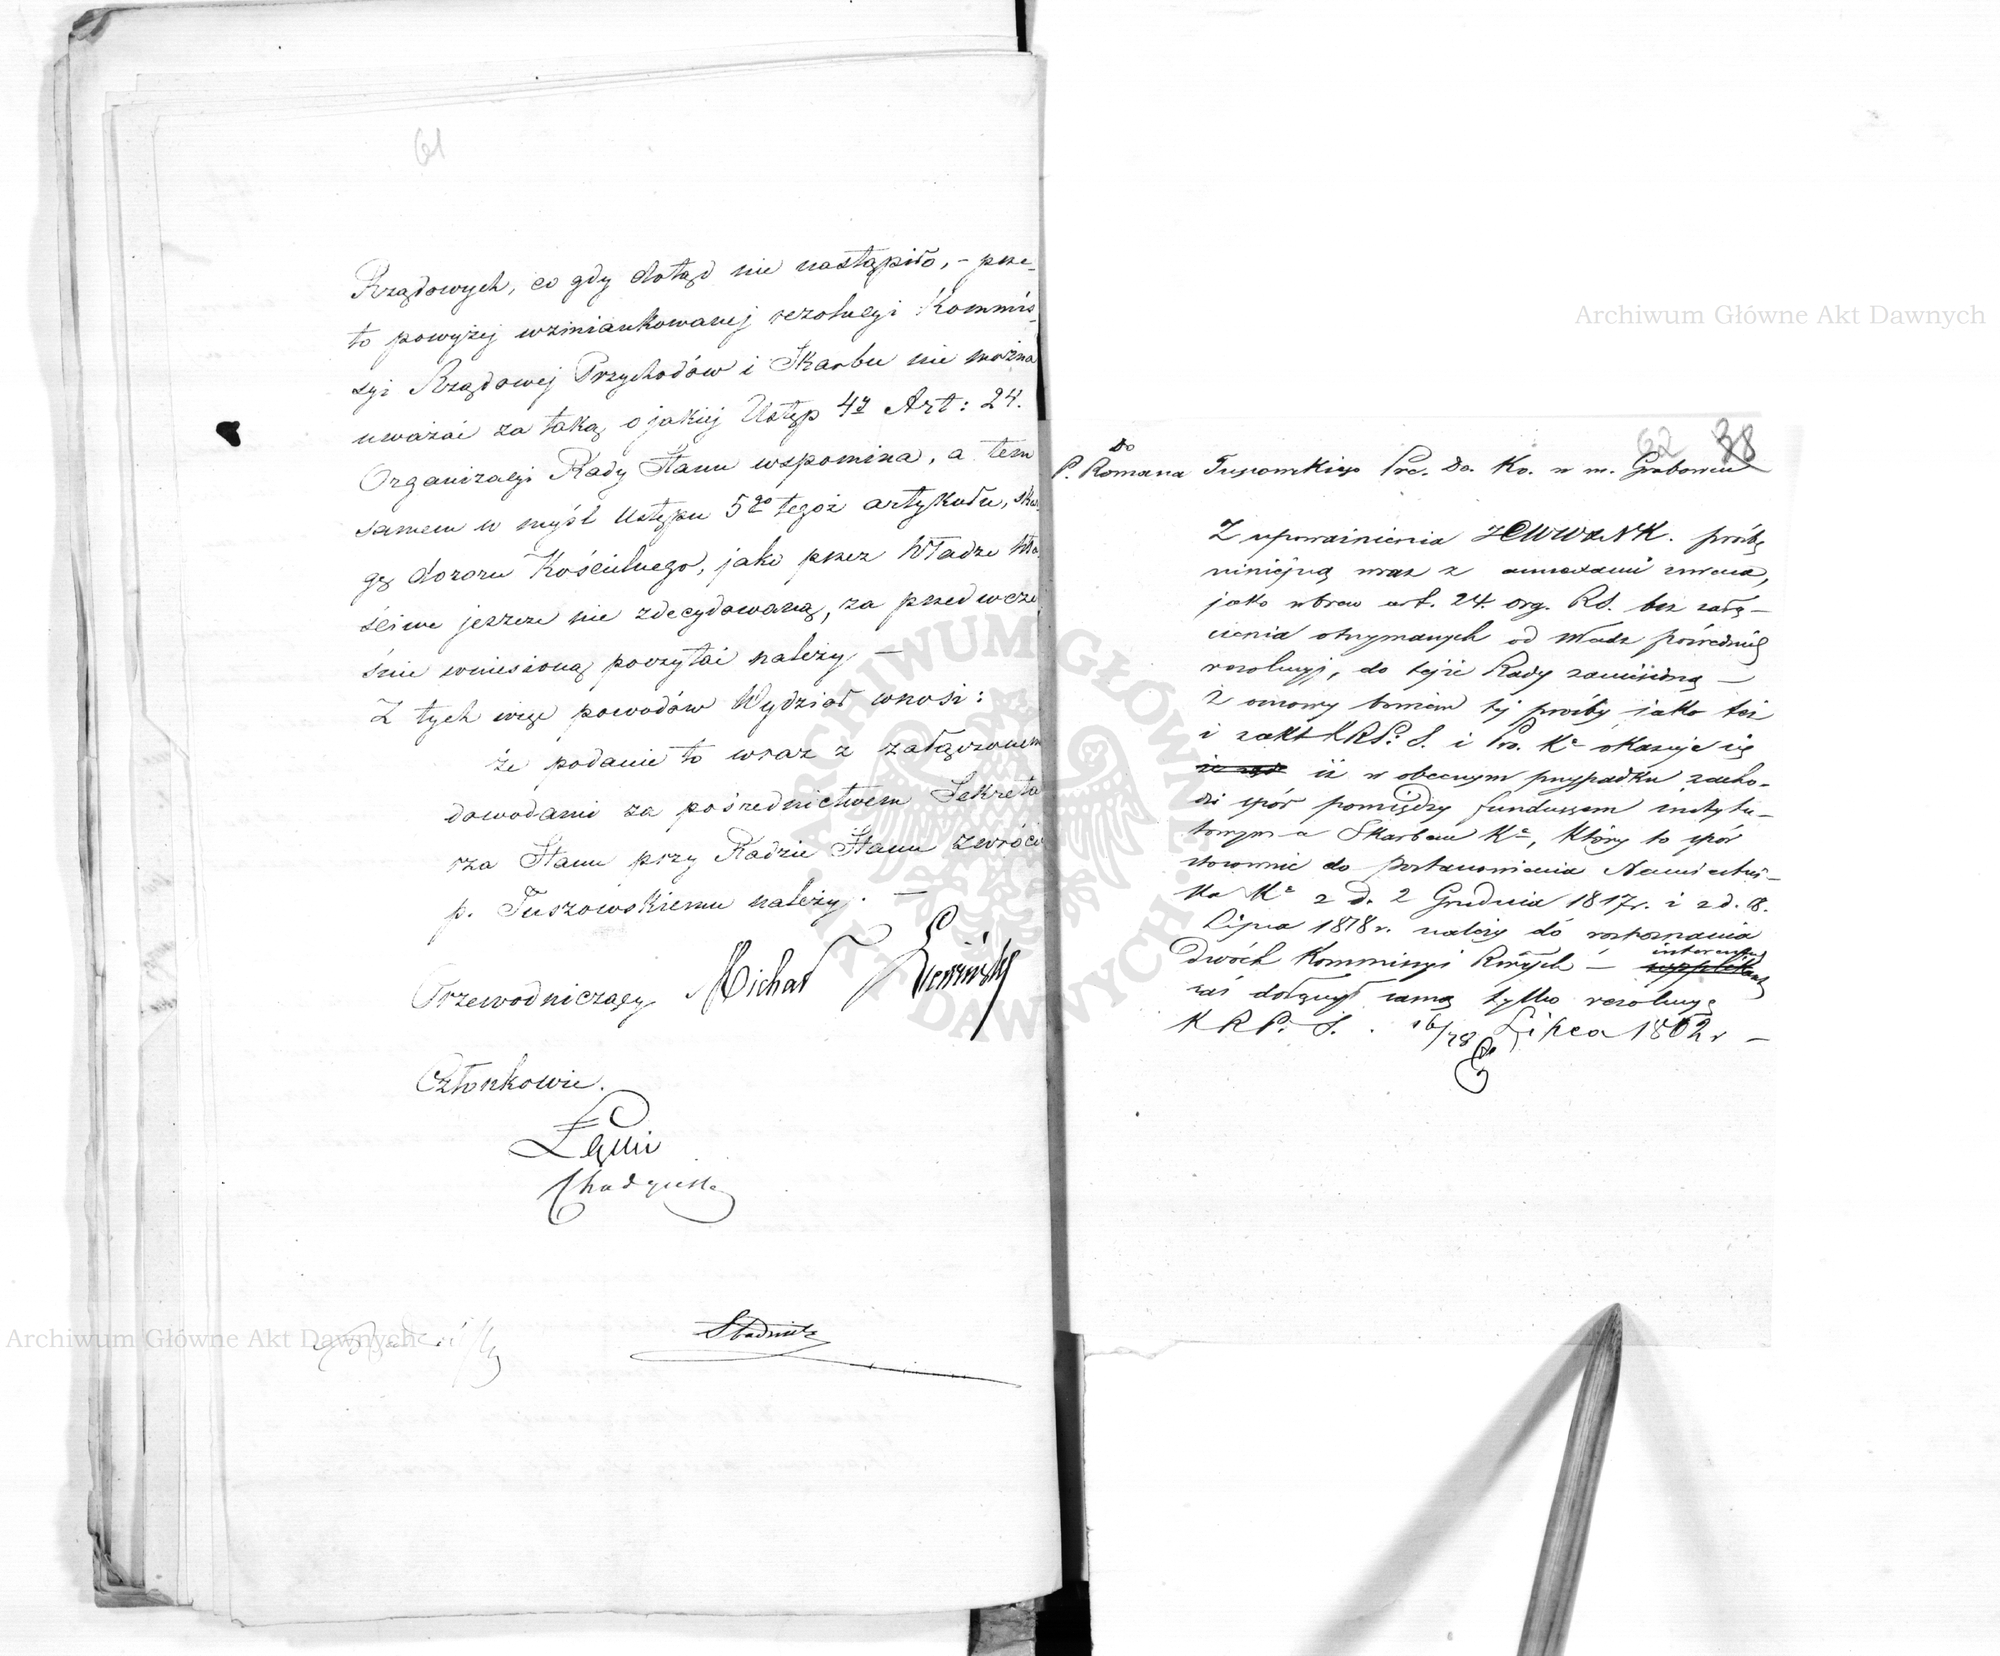 61
Rządowych, co gdy dotąd nie nastąpiło, – prze-
to powyżej wzmiankowanej rezolucyi Kommis-
syi Rządowej Przychodów i Skarbu nie można
uważać za taką o jakiej Ustęp 4y Art: 24.
Organizacyi Rady Stanu wspomina, a tem
samem w myśl Ustępu 5go tegoż artykułu, skar-
gę dozoru Kościelnego, jako przez Władze wła-
ściwe jeszcze nie zdecydowaną, za przedwcze
śnie wniesioną poczytać należy –
Z tych więc powodów Wydział wnosi:
że podanie to wraz z załączonemi
dowodami za pośrednictwem Sekreta
rza Stanu przy Radzie Stanu zwrócić
p. Tuszowskiemu należy. –
Przewodniczący Michał
Członkowie.
Łęski
62 38
Do
P. Romana Tuszowskiego Pre. Do. Ko. w m. Grabowcu
Z upoważnienia JOWWXNK. prośbę
niniejszą wraz z annexami zwraca,
jako wbrew art. 24. org. RS. bez załą-
czenia otrzymanych od Władz pośrednich
rezolucyj, do tejże Rady zaniesioną –
Z osnowy bowiem tej prośby jako też
i z akt KRP. S. i Kr. okazuje się
iż w obecnym przypadku zacho-
dzi spór pomiędzy funduszem instytu-
towym a Skarbem Kr, który to spór
stosownie do postanowienia Namiestni-
ka Kr z d. 2 Grudnia 1817 r. i z d. 18.
Lipca 1818 r. należy do rozpoznania
dwóch Kommissyi Rzwych – interessant
zaś dołączył samą tylko rezolucyę
KRP. S. 16/28 Lipca 1862 r –
Archiwum Główne Akt Dawnych
Archiwum Główne Akt Dawnych
ARCHIWUM GŁÓWNE AKT DAWNYCH